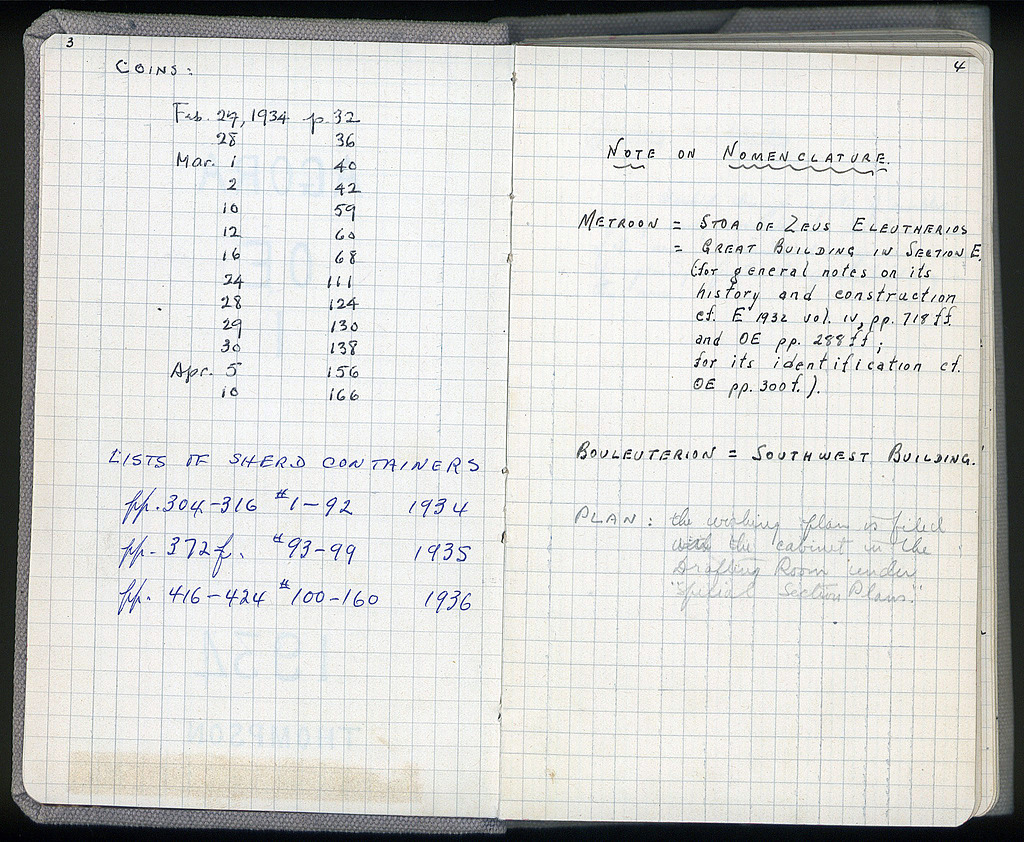 3
COINS:
Feb. 27, 1934 p. 32
28 36
Mar. 1 40
2 42
10 59
12 60
16 68
24 111
28 124
29 130
30 138
Apr. 5 156
10 166
LISTS OF SHERD CONTAINERS
pp. 304-316 #1-92 1934
pp. 372f. #93-99 1935
pp. 416-424 #100-160 1936
4
NOTE ON NOMENCLATURE.
METROON = STOA OF ZEUS ELEUTHERIOS
= GREAT BUILDING IN SECTION E.
(for general notes on its
history and construction
cf. E 1932 vol. IV, pp. 718ff.
and OE pp. 288ff;
for its identification cf.
OE pp. 300f.).
BOULEUTERION = SOUTHWEST BUILDING.
PLAN: the working plan is filed
with the cabinet in the
Drafting Room under
"Special Section Plans."
1934
THOMPSON